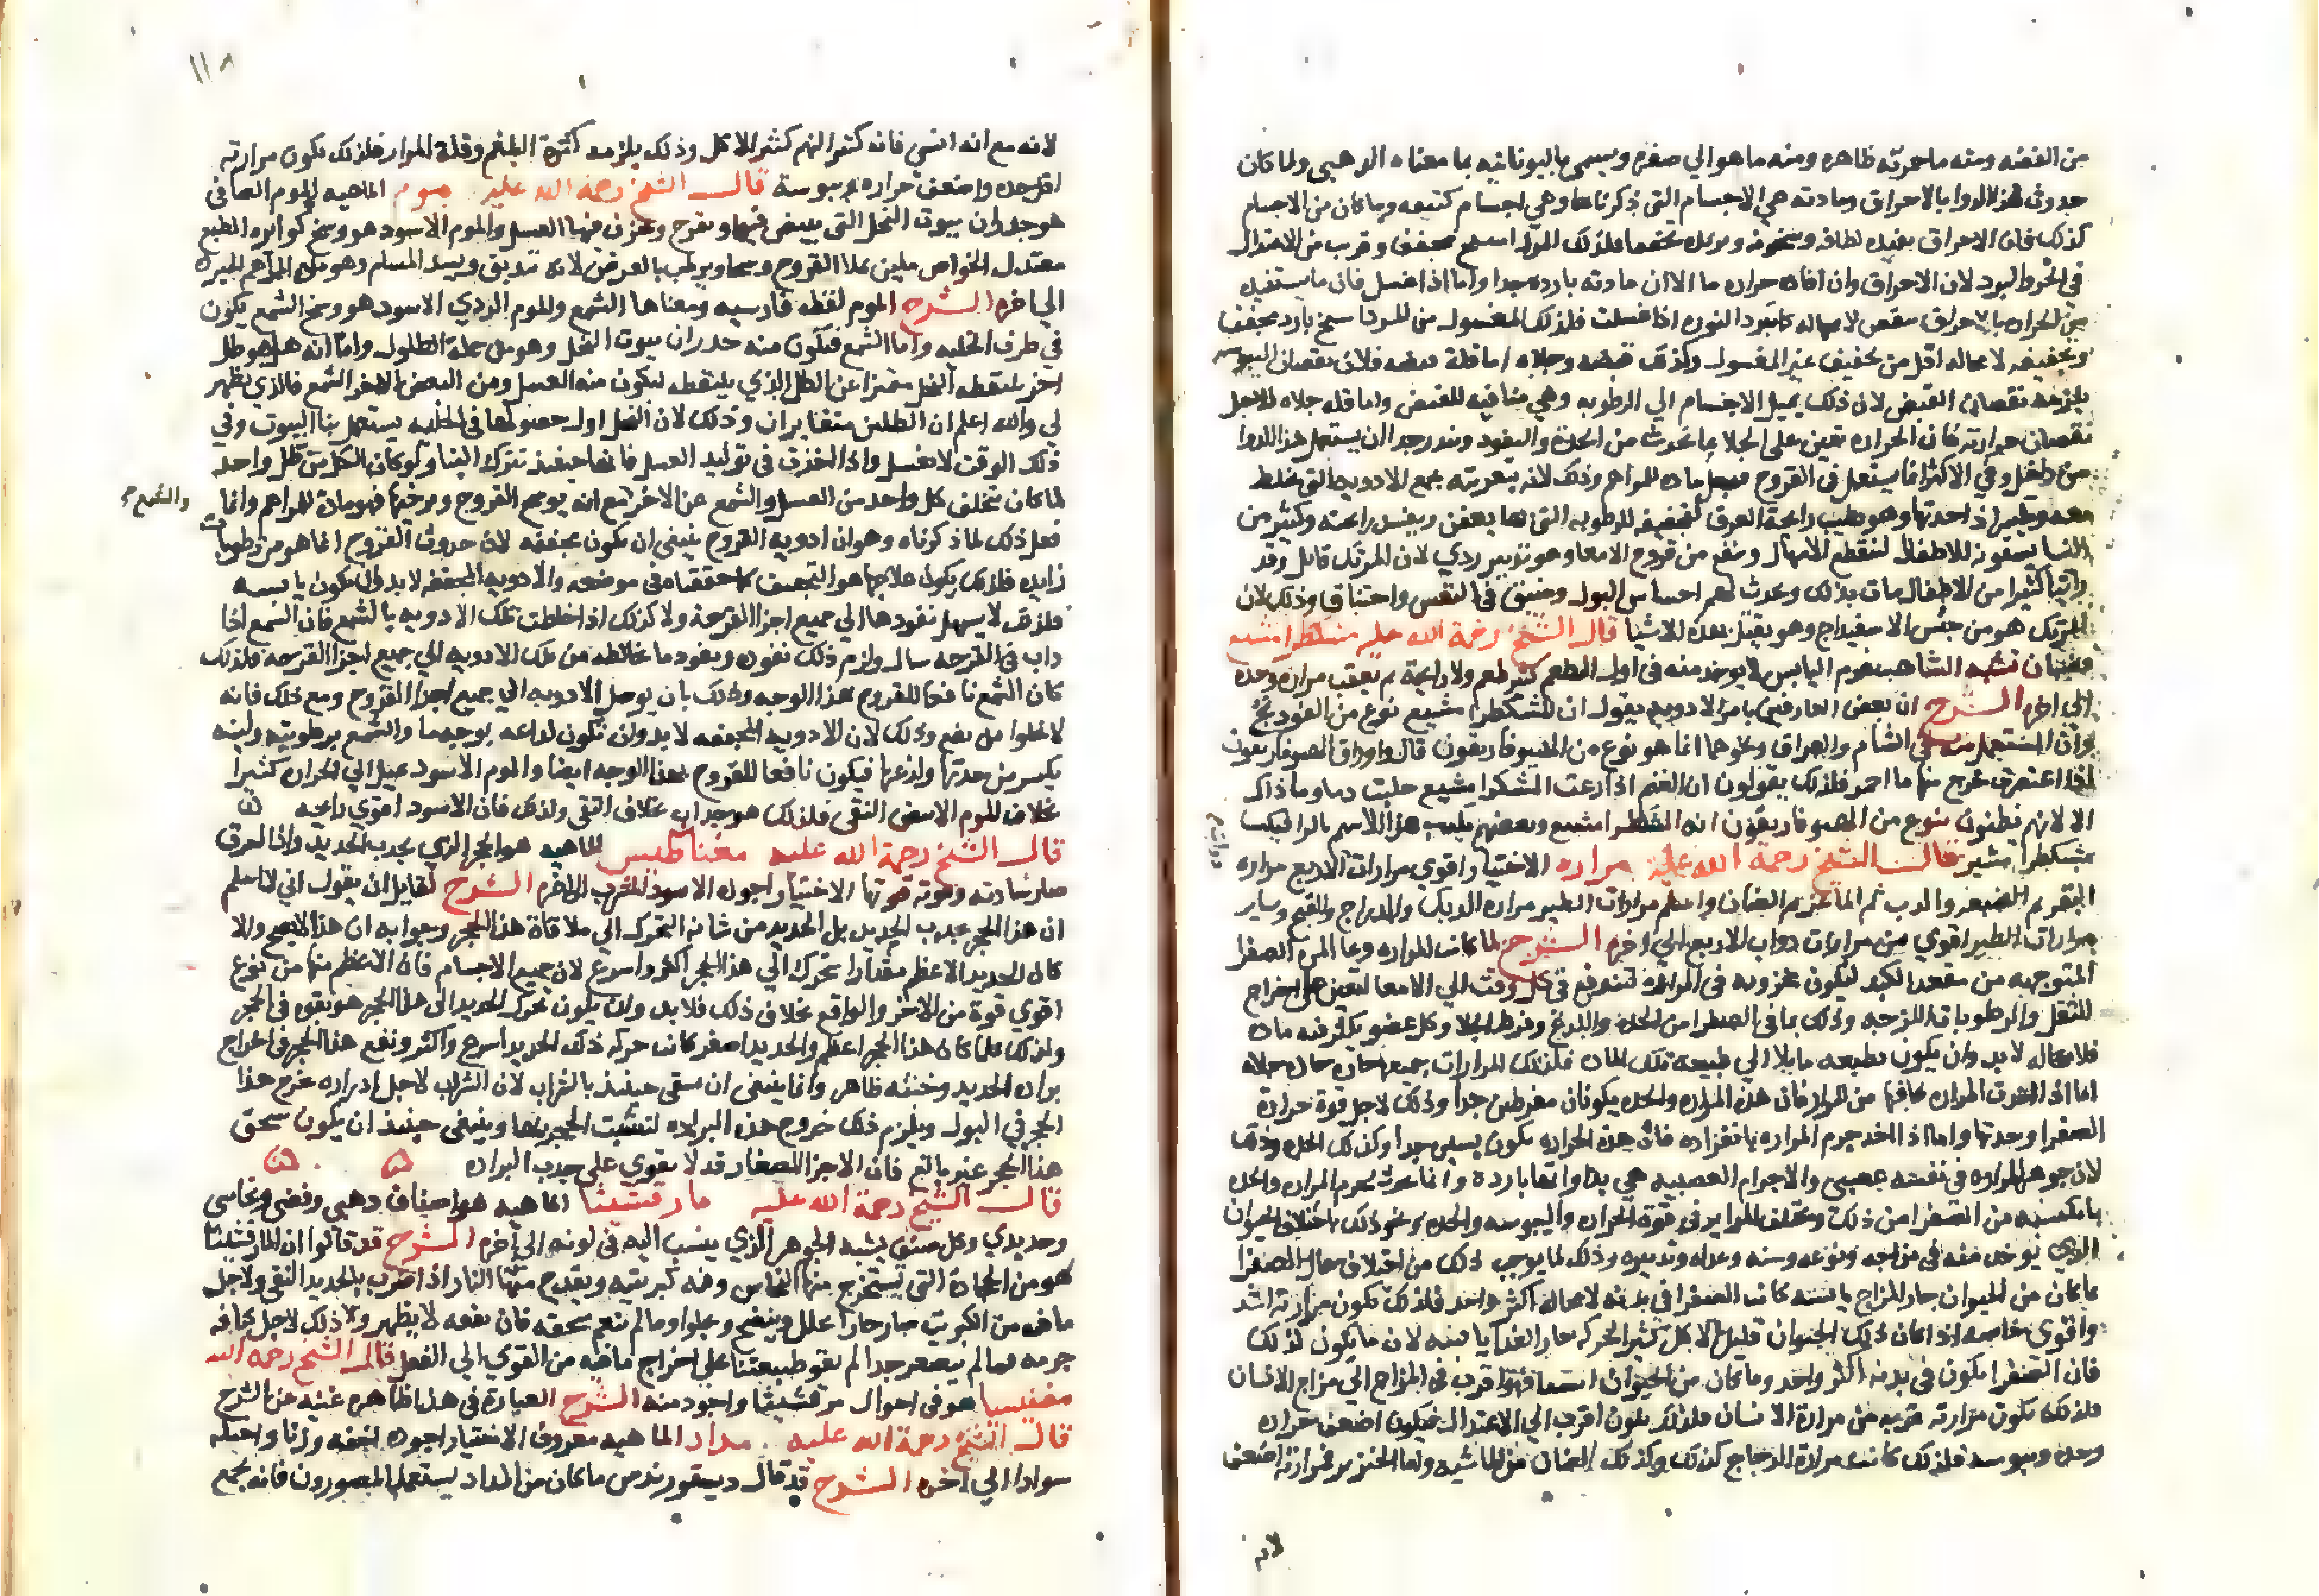 من الفضه ومنه ما حمرته ظاهره ومنه ما هو الي صفره ويسمي باليونانيه بما معناه الدهبي ولما كان
حدوث هذا الدوا بالاحراق ومادته هي الاجسام التي ذكرناها وهي اجسام كثيفه وما كان من الاجسام
كذلك فان الاحراق يفيده لطافه وسخونه ويزيده تجففا فلذلك المرداسنج مجفف وقرب من الاعتدال
في الحر والبرد لان الاحراق وان افاده حراره ما الا ان مادته بارده جدا واما اذا غسل فان ما يستفيده
من الحراره بالاحراق ينقص لا محاله كما تبرد النوره اذا غسلت فلذلك المغسول من المرداسنج بارد مجفف
وتجفيفه لا محاله اقل من تجفيف غير المغسول وكذلك قبضه وجلاه اما قلة قبضه فلان نقصان اليبوسه
يلزمه نقصان القبض لان ذلك يميل الاجسام الي الرطوبه وهي منافيه للقبض واما قله جلاه فلاجل
نقصان حرارته فان الحراره تعين علي الجلا بما تحدث من الحدة والنفود ويندر جدا ان يستعمل هذا الدوا
من داخل وفي الاكثر انما يستعمل في القروح فيجعل ماده للمراهم وذلك لانه بتغريته يجمع الادويه التي تخلط
معه ويكسر اذا حدتها وهو يطيب رائحة العرق لتجفيفه للرطوبه التي لها يعفن ويفسد رائحته وكثير من
النسا يسقونه للاطفال لتقطع الاسهال وينفع من قروح الامعا وهو تدبير ردي لان المرتك قاتل وقد
راينا كثيرا من الاطفال مات بذلك وحدث لهم احتباس البول وضيق في النفس واختناق وذلك لان
المرتك هو من جنس الاسفيداج وهو يقتل بهذه الاشيا قال الشيخ رحمة الله عليه مشكطرامشيع
قضبان تشبه الشاهسفرم اليابس لا يوجد منه في اول الطعم كثير طعم ولا رايحة ثم يعقب مراره وحده
الي اخره الشرح ان بعض العارفين بامر الادويه يقول ان المشكطرا مشيع نوع من الفودنج
وان المستعمل منه في الشام والعراق ونحوهما انما هو نوع من الهيوفاريقون قال واوراق الهيوفاريقون
اذا اعتصرت خرج منها ما احمر فلذلك يقولون ان الغنم اذا رعت المشكرا مشيع حلبت دما وما ذاك
الا لانهم يظنون بنوع من الهيوفاريقون انه المشكطرا مشيع وبعضهم يكتب هذا الاسم بالرا فيكتب
مشكطرا مشير قالـ الشيخ رحمة الله عليه مراره الاختيار اقوي مرارات الاربع مراره
البقر ثم الضبعه والدب ثم الماعز ثم الضان واسلم مرارات الطير مراره الديك والدراج والقبج وساير
مرارات الطير اقوي من مرارات دواب الاربع الي اخره الشرح لما كانت المراره وعا المره الصفرا
المتوجهه من مقعد الكبد لتكون مخزونه في المراره لتندفع في كل وقت الي الامعا لتعين علي اخراج
الثفل والرطوبات اللزجه وذلك بما في الصفرا من الحده واللذع وفرط الجلا وكل عضو يكثر فيه ماده
فلا محاله لا بد وان يكون بطبعه مايلا الي طبيعة تلك الماده فلذلك المرارات جميعها حاره حاده جلاه
اما اذا اخذت المراره بما فيها من المرار فان هذه المراره والحده يكونان مفرطين جدا وذلك لاجل قوة حرارة
الصفرا وحدتها واما اذا اخذ جرم المراره بانفراده فان هذه الحراره يكون يسير جدا وكذلك الحده وذلك
لان جوهر المراره في نفسه عصبي والاجرام العصبيه هي بذواتها باردة وانما حدث لجرم المراره والحده
ما تكسبه من الصفرا من ذلك وتختلف المراير في قوة الحراره واليبوسه والحده ونحو ذلك باختلاف الحيوان
الذي يوخذ منه في مزاجه ونوعه وسنه وغداه وتدبيره وذلك لما يوجب ذلك من اختلاف حال الصفرا
فما كان من الحيوان حار المزاج يابسه كانت الصفرا في بدنه لا محاله اكثر واحد فلذلك يكون مرارته اشد
واقوي خاصه اذا كان ذلك الحيوان قليل الاكل كثير الحركه حار الغذا يابسه لان ما يكون لذلك
فان الصفرا يكون في بدنه اكثر واحد وما كان من الحيوان انسيا فهو اقرب في المزاج الي مزاج الانسان
فلذلك يكون مرارته قريبه من مرارة الانسان فلذلك يكون اقرب الي الاعتدال فيكون اضعف حراره
وحده ويبوسه فلذلك كانت مرارة الدجاج كذلك وكذلك الضان من الماشيه واما الخنزير فمرارته اضعف
لانه
لانه مع انه انسي فانه كثير النهم كثير الاكل وذلك يلزمه كثرة البلغم وقلة المرار فلذلك يكون مرارته
اقل حده واضعف حراره ويبوسة قالـ الشيخ رحمة الله عليه موم الماهيه الموم الصافي
هو جدران بيوت النحل التي تبيض فيها وتفرخ وتخزن فيها العسل والموم الاسود هو وسخ كوائره الطبع
معتدل الخواص ملين يملا القروح وسخا ويرطب بالعرض لانه تدبق ويسد المسام وهو ماده المراهم المبره
الي اخره الشرح الموم لفظه فارسيه ومعناها الشمع والموم الردي الاسود هو وسخ الشمع يكون
في طرف الخليه واما الشمع فيكون منه جدران بيوت النحل وهو من جملة الطلول واما انه هل هو طل
اخر يلتقطه النحل متميزا عن الطل الذي يلتقطه ليكون منه العسل ومن البعض الاخر الشمع فالذي يظهر
لي والله اعلم ان الطلين متغايران وذلك لان النحل اول حصولها في الخليه يستعمل بنا البيوت وفي
ذلك الوقت لا تعسل واذا اخذت في توليد العسل فانها حينئذ تترك البنا ولو كان الكل من طل واحد
لما كان يختلف كل واحد من العسل والشمع عن الاخر مع انه يوسخ القروح ويرخيها فهو مادة المراهم وانما
والشمع
فعل ذلك لما ذكرناه وهو ان ادويه القروح ينبغي ان يكون مجففه لان حدوث القروح انما هو من رطوبات
زايده فلذلك يكون علاجها هو التجفيف كما حققناه في موضعه والادويه المجففه لا بد وان يكون يابسه
فلذلك لا يسهل نفودها الي جميع اجزا القرحة ولا كذلك اذا خلطت تلك الادويه بالشمع فان الشمع اذا
داب في القرحه سال ولزم ذلك نفوده ونفود ما خالطه من تلك الادويه الي جميع اجزا القرحه فلذلك
كان الشمع نافعا للقروح بهذا الوجه وذلك بان يوصل الادويه الي جميع اجزا القروح ومع ذلك فانه
لا يخلوا من نفع وذلك لان الادويه المجففه لا بد وان تكون لداعه بوجه ما والشمع برطوبته ولينه
يكسر من حدتها ولذعها فيكون نافعا للقروح بهذا الوجه ايضا والموم الاسود يميل الي الحراره كثيرا
بخلاف الموم الابيض النقي فلذلك هو جداب بخلاف النقي ولذلك فان الاسود اقوي رايحه
قالـ الشيخ رحمة الله عليه مغناطيس الماهيه هو الحجر الذي يجدب الحديد واذا احرق
صار شادنه وقوته قوتها الاختيار اجوده الاسود المشرب الي اخره الشرح لقايل ان يقول اني لا اسلم
ان هذا الحجر يجدب الحديد بل الحديد من شانه التحرك الي ملاقاة هذا الحجر وجوابه ان هذا لا يصح والا
كان الحديد الاعظم مقدارا تحركه الي هذا الحجر اكثر واسرع لان جميع الاجسام فان الاعظم منها من نوع
اقوي قوة من الاصغر والواقع بخلاف ذلك فلا بد وان يكون تحرك الحديد الي هذا الحجر هو بقوه في الحجر
ولذلك كلما كان هذا الحجر اعظم والحديد اصغر كانت حركه ذلك الحديد اسرع واكثر ونفع هذا الحجر في اخراج
براده الحديد وخبثه ظاهر وانما ينبغي ان يسقي حينئذ بالشراب لان الشراب لاجل ادراره يخرج هذا
الحجر في البول ويلزم ذلك خروج هذه البراده لتشبث الحجر بها وينبغي حينئذ ان يكون سحق
هذا الحجر غير بالغ فان الاجزا الصغار قد لا يقوي علي جدب البراده
قالـ الشيخ رحمة الله عليه مارقشيثا الماهيه هو اصناف دهبي وفضي ونحاسي
وحديدي وكل صنف يشبه الجوهر الذي ينسب اليه في لونه الي اخره الشرح قد قالوا ان المارقشيثا
هو من الحجارة التي يستخرج منها النحاس وفه كبريتيه ويقدح منها النار اذا ضرب بالحديد النقي ولاجل
ما فه من الكبريت صار حارا يحلل وينضج ويجلوا وما لم ينعم سحقه فان نفعه لا يظهر ولا ذلك لاجل كثافه
جرمه فما لم يصغر جدا لم تقو طبيعتنا علي اخراج ما فيه من القوي الي الفعل قالـ الشيخ رحمه الله
مغنيسيا هو في احوال مرقشيثا واجود منه الشرح العبارة في هذا ظاهره غنيه عن الشرح
قالـ الشيخ رحمة الله عليه مداد الماهيه معروف الاختيار اجوده اخفه وزنا واحلكه
سوادا الي اخره الشرح قد قال ديسقوريدس ما كان من المداد يستعمله المصورون فانه يجمع
١١٨